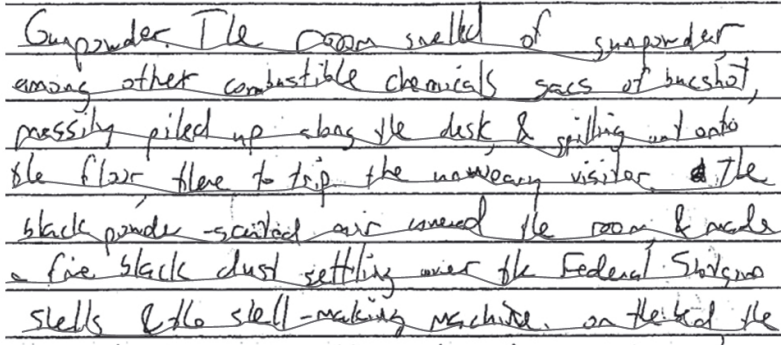 Gunpowder. The room smelled of gunpowder,
among other combustible chemicals sacs of bucshot,
messily piled up along the desk, & spilling out onto
the floor there to trip the unweary visitor. The
black powder-scented air covered the room, & made
a fine black dust settling over the Federal Shotgun
shells & the shell-making machine. on the bed the